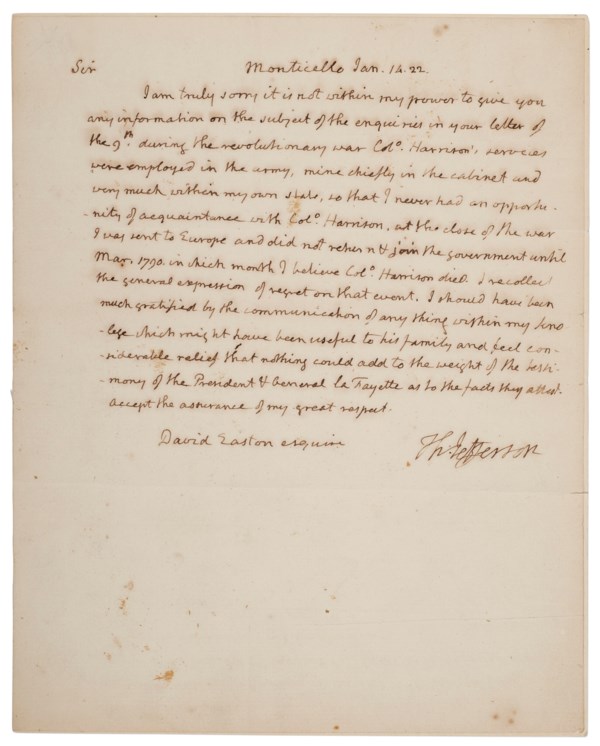 Sir Monticello Jan. 14. 22.
I am truly sorry it is not within my power to give you
any information on the subject of the enquiries in your letter of
the 9th. during the revolutionary war Colo. Harrison's services
were employed in the army, mine chiefly in the cabinet and
very much within my own state, so that I never had an opportu-
-nity of acquaintance with Colo. Harrison. at the close of the war
I was sent to Europe and did not return & join the government until
Mar. 1790. in which month I believe Colo. Harrison died. I recollect
the general expression of regret on that event. I should have been
much gratified by the communication of any thing within my kno
-lege which might have been useful to his family and feel con-
-siderable relief that nothing could add to the weight of the testi-
-mony of the President & General la Fayette as to the facts they attest.
Accept the assurance of my great respect.
David Easton esquire Th: Jefferson